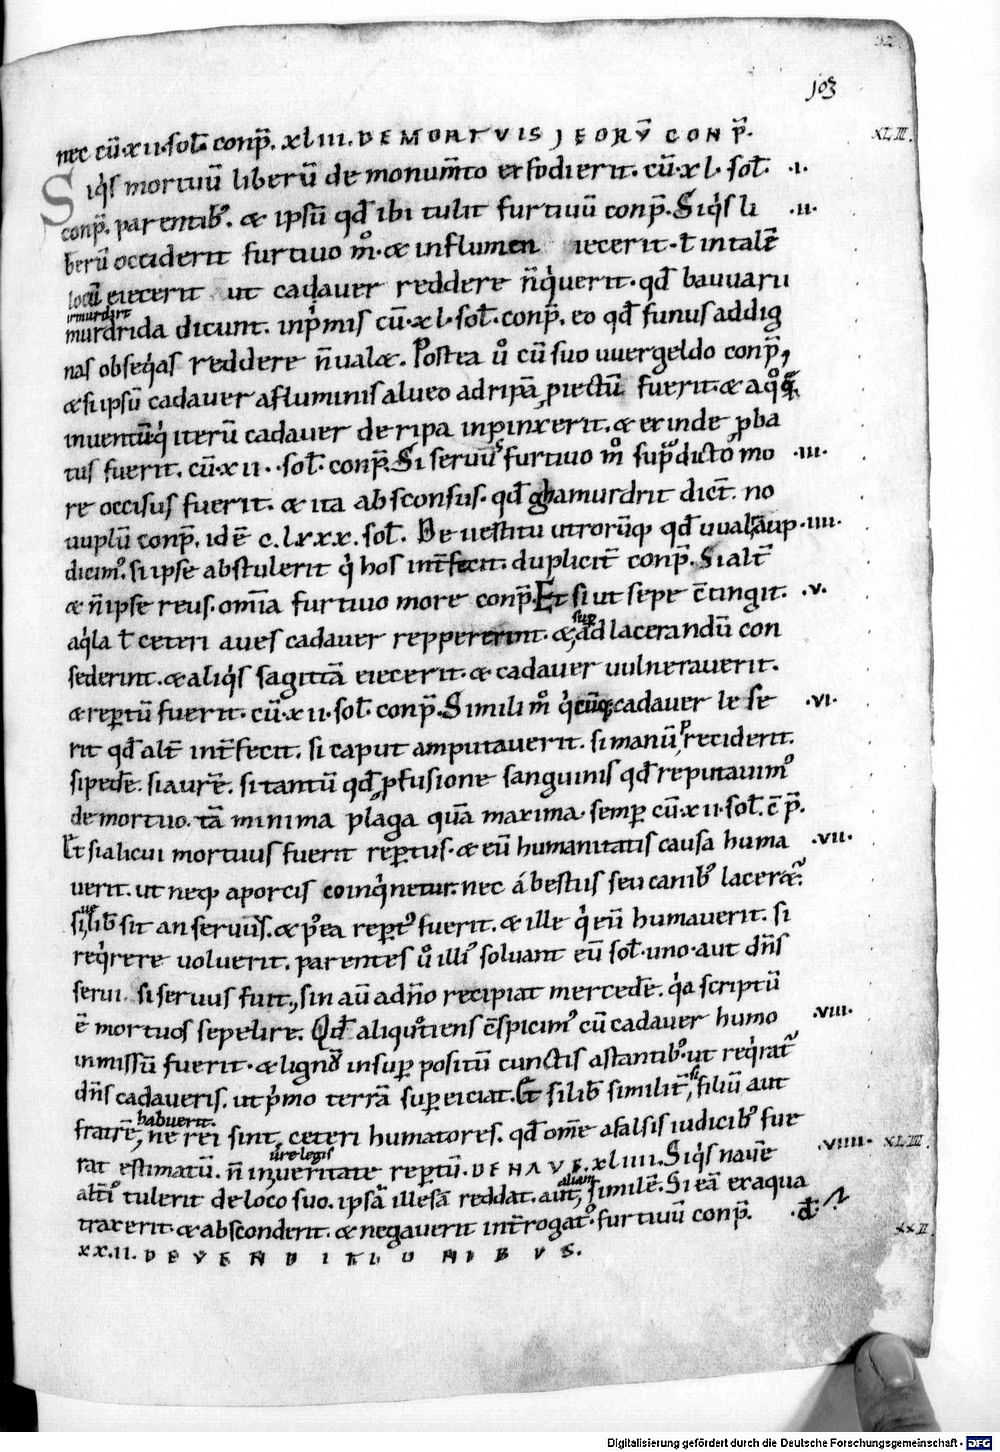 103
nec cū·xii·sol̄. conp̄. xliii. DE MORTUIS J EORŪ CONP̄. XLIII.
Siq̇s mortuū liberū de monum̄to exfodierit. cū·xl· sol̄. ·i·
conp̄. parentib᷒. & ipsū qđ ibi tulit furtiuū conp̄. Siq̇s li ·ii·
berū occiderit furtiuo m̊. & influmen iecerit· ł in tale᷒
locū eiecerit ut cadauer reddere n̄q̇uerit. qđ bauuarii
irmurdrit
murdrida dicunt. inp̍mis cū·xl·sol̄.conp̄. eo qđ funus addig
nas obseq̇as reddere n̄ualæ. Postea ů cū suo uuergeldo conp̄,
&si ipsū cadauer afluminis alueo adripā piectū fuerit. & aq̊q̄
inuentū q̇ iterū cadauer deripa inpinxerit. & exinde ꝓba
tus fuerit. cū·xii··sol̄. conp̄. Si seruus furtiuo m̊ sup̄dicto mo ·iii·
re occisus fuerit. & ita absconsus. qđ ghamurdrit dict̄. no
uuplū conp̄. idē c.lxxx. sol̄. De uestitu utrorūq; qđ uualaup ·iiii·
dicim᷒. si ipse abstulerit q̇ hos int̄fecit. duplicit̄ conp̄. Si alt̄
& n̄ipse reus. om̄ia furtiuo more conp̄. Et si ut sepe c̄tingit. ·v·
aq̇la ł ceteri aues cadauer reppererint. &, sup ad lacerandū con
sederint. & aliq̇s sagittā eiecerit. & cadauer uulnerauerit.
& rep̱tū fuerit. cū·xii·sol̄ conp̄. Simili m̊ q̇cūq; cadauer lese ·vi·
rit qđ alt̄ int̄fecit. si caput amputauerit. si manū p̱reciderit.
si pedē. si aurē. si tantū qđ ꝓfusione sanguinis qđ reputauim᷒
de mortuo. tā minima plaga quā maxima. semp̱ cū·xii·sol̄. c̄ p̄.
Et si alicui mortuus fuerit rep̱tus. & eū humanitatis causa huma ·vii·
uerit. ut neq; aporcis coinq̇netur. nec á bestiis seu canib᷒ laceræt̄.
siue lib̄ sit an seruus. & p̍ea rep̱t᷒ fuerit. & ille q̇ eū humauerit. si
req̇rere uoluerit. parentes ů illi᷒ soluant eū sol̄·uno·aut dn̄s
serui. si seruus fuit., sin au̅ adn̄o recipiat mercedē. q̇a scriptū
ē mortuos sepelire. Qđ aliquotiens c̄spicim᷒ cū cadauer humo ·viii·
inmissū fuerit. & lignū insup̱ positū cunctis astantib᷒. ut req̇rat᷒
dn̄s cadaueris. ut p̍mo terrā sup̱eiciat. Et si lib̄ similit̄, si filiū aut
fratrē, habuerit. ne rei sint, ceteri humatores. qđ om̄e afalsis iudicib᷒ fue
rat estimatū. n̄ in ueritate ure legis rep̱tū. DE NAVE. xliiii. Siq̇s nauē ·viiii· XLIIII.
alt̄i᷒ tulerit de loco suo. ipsā illesā reddat. aut, aliam similē. Si eā exaqua
traxerit. & absconderit. & negauerit int̄rogat᷒. furtiuū conp̄.
xx.ii. DE VENDITIONIBUS. XXII
Digitalisierung gefördert durch die Deutsche Forschungsgemeinschaft - DFG